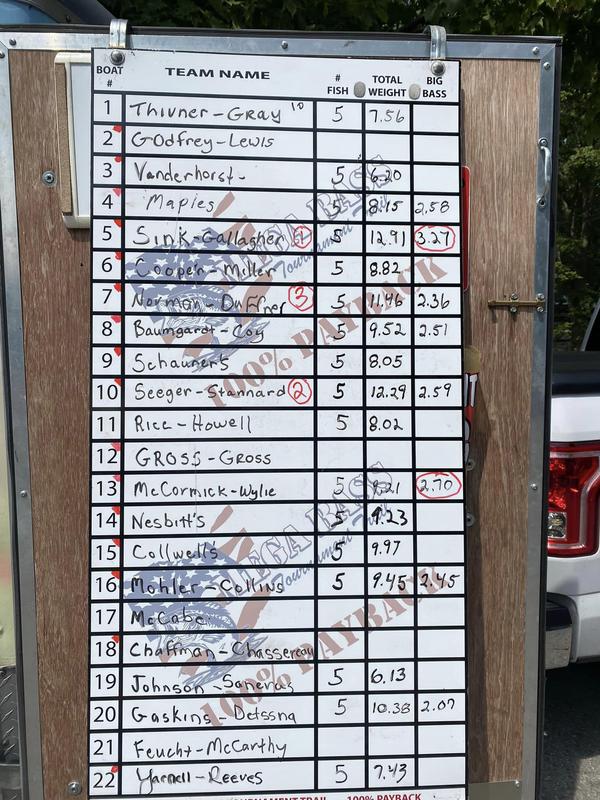 BOAT # TEAM NAME # FISH TOTAL WEIGHT BIG BASS
1 Thivner-Gray 10 5 7.56
2 Godfrey-Lewis
3 Vanderhorst- 5 6.20
4 Maples 5 8.15 2.58
5 Sink-Gallagher 1 5 12.91 3.27
6 Cooper-Miller 5 8.82
7 Norman-Duffner 3 5 11.46 2.36
8 Baumgardt-Coy 5 9.52 2.51
9 Schauner's 5 8.05
10 Seeger-Stannard 2 5 12.29 2.59
11 Rice-Howell 5 8.02
12 GROSS-GROSS
13 McCormick-Wylie 5 9.21 2.70
14 Nesbitt's 5 9.23
15 Collwell's 5 9.97
16 Mohler-Collins 5 9.45 2.45
17 McCabe
18 Chaffman-Chassereau
19 Johnson- 5 6.13
20 Gaskins- 5 10.38 2.07
21 Feucht-McCarthy
22 Yarnell-Reeves 5 7.43
MEGA BASS
Tournament Trail
100% PAYBACK
MEGA BASS
Tournament Trail
100% PAYBACK
TOURNAMENT TRAIL 100% PAYBACK